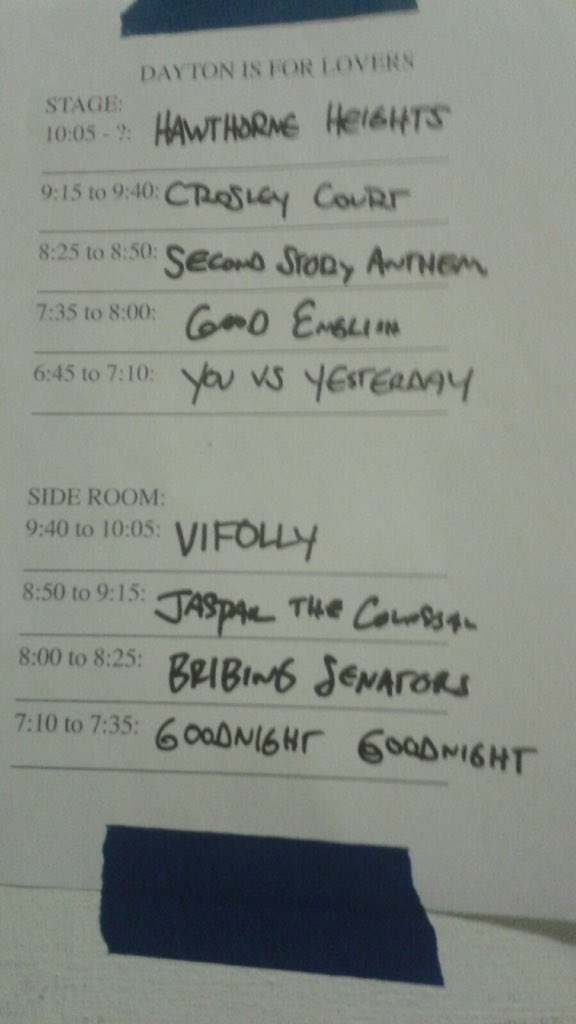 DAYTON IS FOR LOVERS
STAGE:
10:05 - ?: HAWTHORNE HEIGHTS
9:15 to 9:40: CROSLEY COURT
8:25 to 8:50: SECOND STORY ANTHEM
7:35 to 8:00: GOOD ENGLISH
6:45 to 7:10: YOU VS YESTERDAY
SIDE ROOM:
9:40 to 10:05: VIFOLLY
8:50 to 9:15: JASPAR THE COLOSSAL
8:00 to 8:25: BRIBING SENATORS
7:10 to 7:35: GOODNIGHT GOODNIGHT